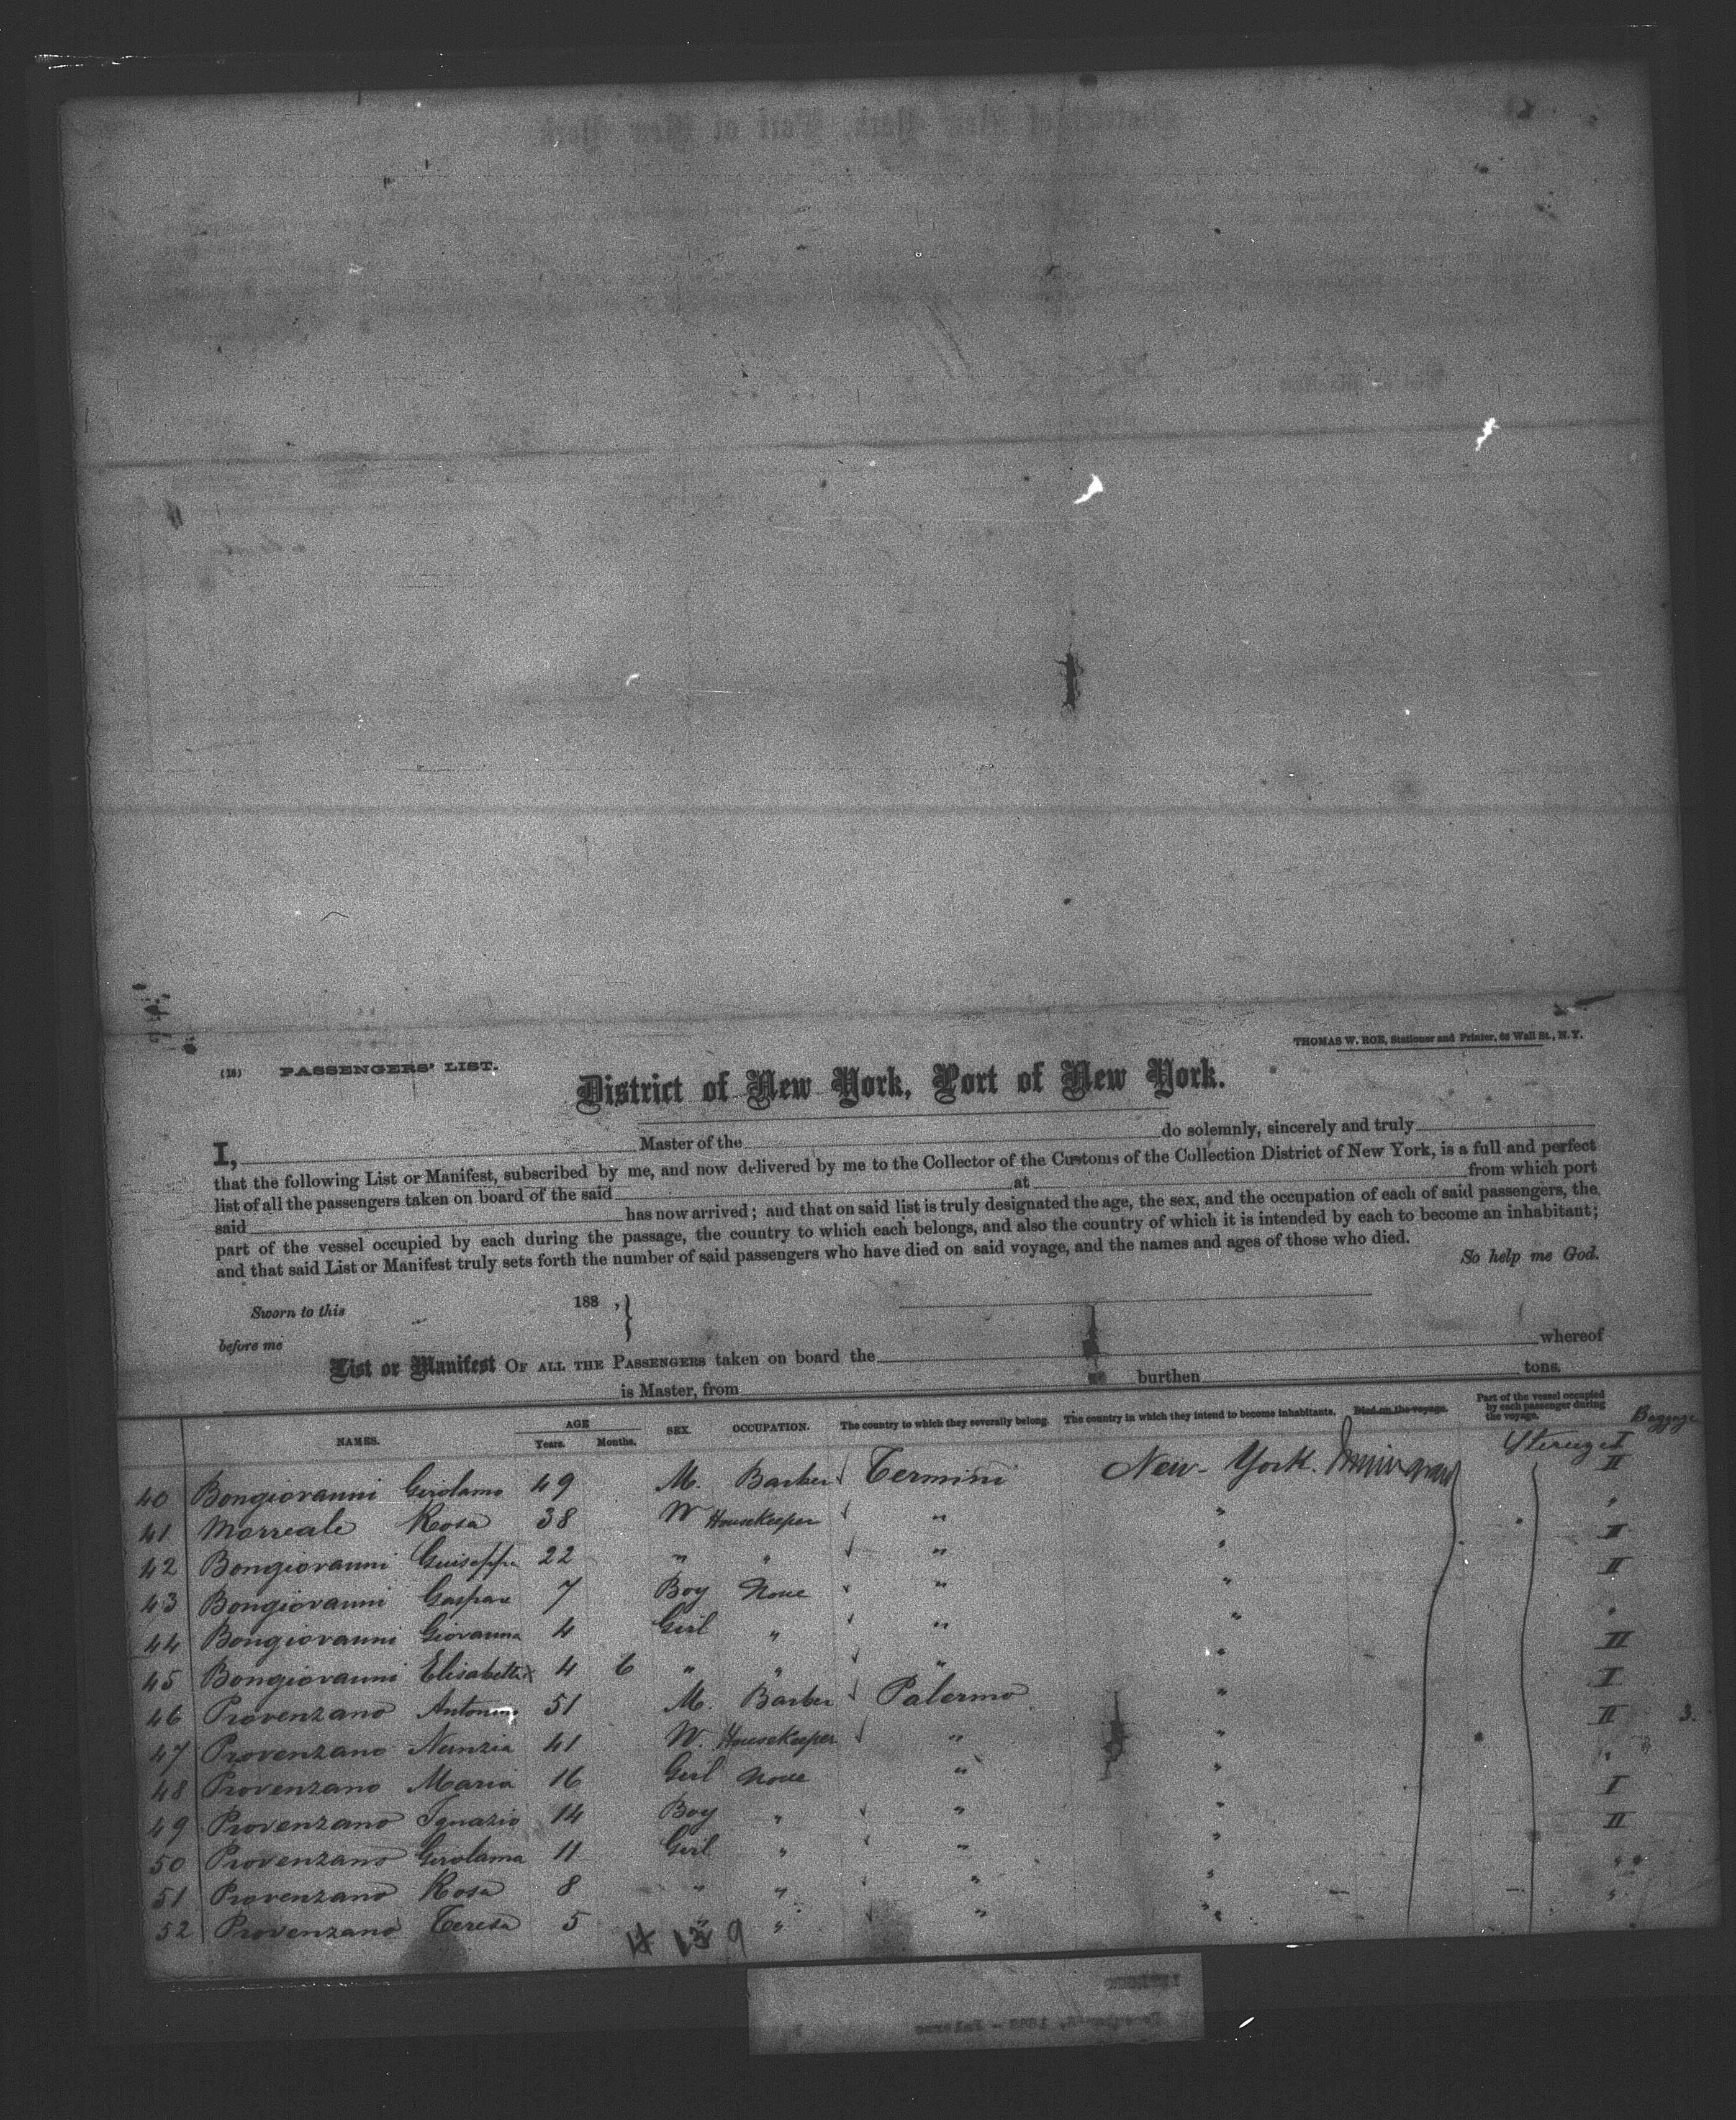 THOMAS W. ROE, Stationer and Printer, 66 Wall St., N.Y.
(18) PASSENGERS' LIST.
District of New York, Port of New York.
I, Master of the do solemnly, sincerely and truly
that the following List or Manifest, subscribed by me, and now delivered by me to the Collector of the Customs of the Collection District of New York, is a full and perfect
list of all the passengers taken on board of the said at from which port
said has now arrived; and that on said list is truly designated the age, the sex, and the occupation of each of said passengers, the
part of the vessel occupied by each during the passage, the country to which each belongs, and also the country of which it is intended by each to become an inhabitant;
and that said List or Manifest truly sets forth the number of said passengers who have died on said voyage, and the names and ages of those who died.
So help me God.
Sworn to this 188 , }
before me
List or Manifest OF ALL THE PASSENGERS taken on board the whereof
is Master, from burthen tons.
NAMES. AGE Years. Months. SEX. OCCUPATION. The country to which they severally belong. The country in which they intend to become inhabitants. Died on the voyage. Part of the vessel occupied by each passenger during the voyage. Baggage
40 Bongiovanni Girolamo 49 M. Barber Termini New-York. II
41 Morreale Rosa 38 W Housekeeper " " "
42 Bongiovanni Guiseppa 22 " " " " II
43 Bongiovanni Gaspare 7 Boy None " " II
44 Bongiovanni Giovanna 4 Girl " " " "
45 Bongiovanni Elisabetta 4 6 " " " " II
46 Provenzano Antonino 51 M. Barber Palermo " I
47 Provenzano Nunzia 41 W. Housekeeper " " II 3.
48 Provenzano Maria 16 Girl None " " "
49 Provenzano Ignazio 14 Boy " " " I
50 Provenzano Girolama 11 Girl " " " II
51 Provenzano Rosa 8 " " " " "
52 Provenzano Teresa 5 " " " " "